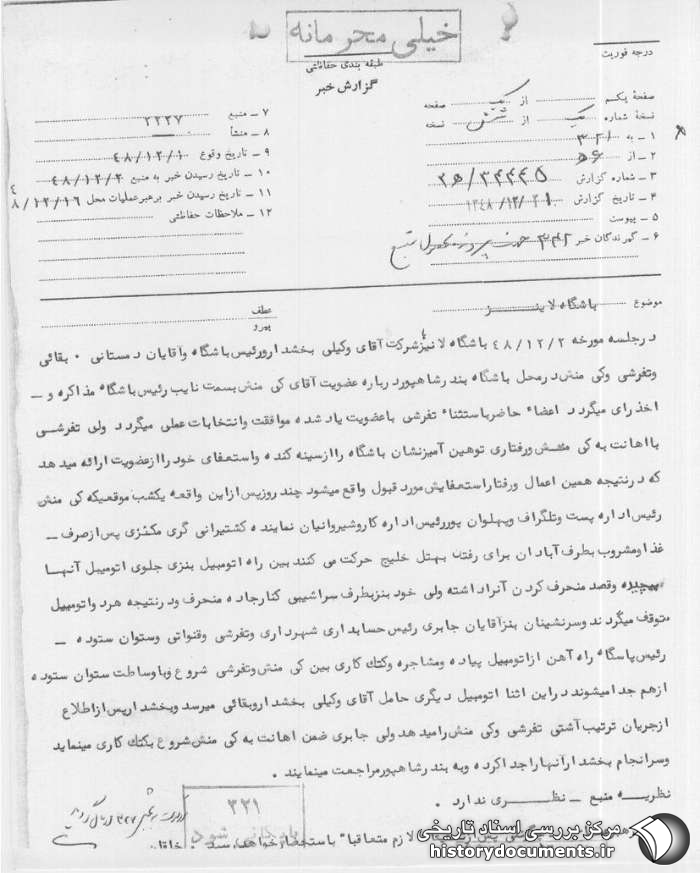 خیلی محرمانه
طبقه بندی حفاظتی
گزارش خبر
درجه فوریت
صفحه یکم از یک صفحه
نسخه شماره یک از شش نسخه
۱ ـ به ۳۲۱
۲ ـ از ۵۶
۳ ـ شماره گزارش
۴ ـ تاریخ گزارش ۱۳۴۸/۱۲/۲۱
۵ ـ پیوست
۶ ـ گیرندگان خبر
۷ ـ منبع ۲۲۲۷
۸ ـ منشأ
۹ ـ تاریخ وقوع ۴۸/۱۲/۱۰
۱۰ ـ تاریخ رسیدن خبر به منبع ۴۸/۱۲/۲
۱۱ ـ تاریخ رسیدن خبر برهبر عملیات محل ۴۸/۱۲/۱۶
۱۲ ـ ملاحظات حفاظتی
موضوع باشگاه لاینز
عطف
پیرو
در جلسه مورخه ۴۸/۱۲/۲ باشگاه لانیز شرکت آقای وکیلی بخشدار ورئیس باشگاه وآقایان دمستانی ۰ بقائی
وتفرشی وکی منش در محل باشگاه بندر شاهپور درباره عضویت آقای کی منش بسمت نایب رئیس باشگاه مذاکره و ـ
اخذ رای میگردد اعضاء حاضر باستثناء تفرشی باعضویت یاد شده موافقت وانتخابات عملی میگردد ولی تفرشـی
بااهانت به کی منش ورفتاری توهین آمیزنشان باشگاه راازسینه کنده واستعفای خود راازعضویت ارائه میدهد
که درنتیجه همین اعمال ورفتاراستعفایش مورد قبول واقع میشود چند روزپس ازاین واقعه یکشب موقعیکه کی منش
رئیس اداره پست وتلگراف وپهلوان پور رئیس اداره کاروشیروانیان نماینده کشتیرانی گری مکنزی پس ازصرف ـ
غذا ومشروب بطرف آبادان برای رفتن بهتل خلیج حرکت می کنند بین راه اتومبیل بنزی جلوی اتومیبل آنهـا
پیچیده وقصد منحرف کردن آنراداشته ولی خود بنزبطرف سراشیبی کنارجاده منحرف ودرنتیجه هرد واتومبیل
متوقف میگردند وسرنشینان بنزآقایان جابری رئیس حسابداری شهرداری وتفرشی وقنواتی وستوان ستوده ـ
رئیس پاسگاه راه آهن ازاتومبیل پیاده ومشاجره وکتک کاری بین کی منش وتفرشی شروع وباوساطت ستوان ستوده
ازهم جدا میشوند دراین اثنا اتومبیل دیگری حامل آقای وکیلی بخشدار وبقائی میرسد وبخشدارپس ازاطلاع
ازجریان ترتیب آشتی تفرشی وکی منش رامیدهد ولی جابری ضمن اهانت به کی منش شروع بکتک کاری مینماید
وسرانجام بخشدار آنهاراجدا کرده وبه بندر شاهپور مراجعت مینمایند .
نظریه منبع ـ نظـــری ندارد .
۳۲۱
بایگانی شود
لازم متعاقبا" باستحضارخواهد رسید .
مرکز بررسی اسناد تاریخی
historydocuments.ir